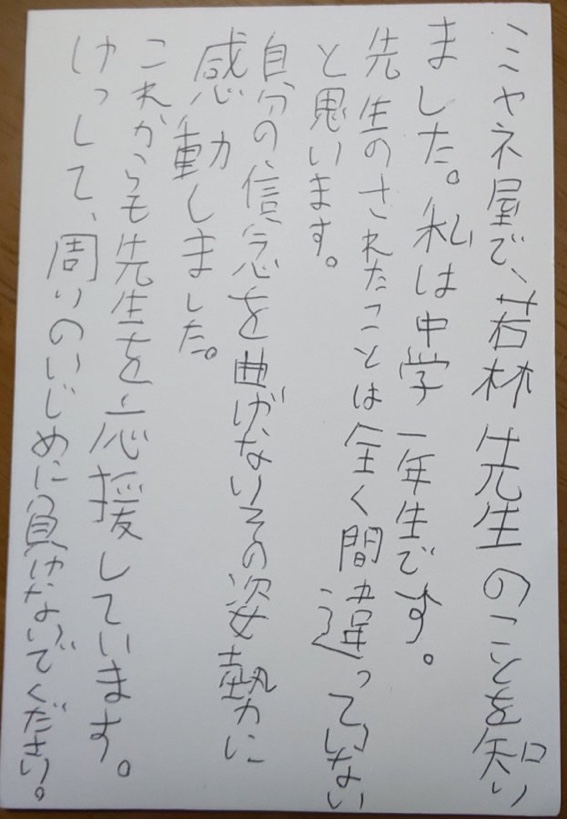 ミヤネ屋で、若林先生のことを知り
ました。私は中学一年生です。
先生のされたことは全く間違っていない
と思います。
自分の信念を曲げないその姿勢に
感動しました。
これからも先生を応援しています。
けっして、周りのいじめに負けないでください。